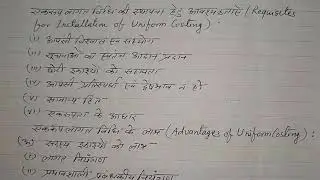 एकरूप लागत विधि की स्थापना हेतु आवश्यकताएँ (Requisites
for Installation of Uniform Costing):
(i) आपसी विश्वास एवं सहयोग
(ii) सूचनाओं का आदान प्रदान
(iii) छोटी इकाइयों को सहायता
(iv) आपसी प्रतिस्पर्धा एवं द्वेषभाव न हो
(v) सामान्य हित
(vi) एकरूपता के आधार
एकरूप लागत विधि के लाभ (Advantages of Uniform Costing):
(अ) सदस्य इकाइयों को लाभ-
(i) लागत नियंत्रण
(ii) प्रभावशाली प्रबन्धकीय नियंत्रण